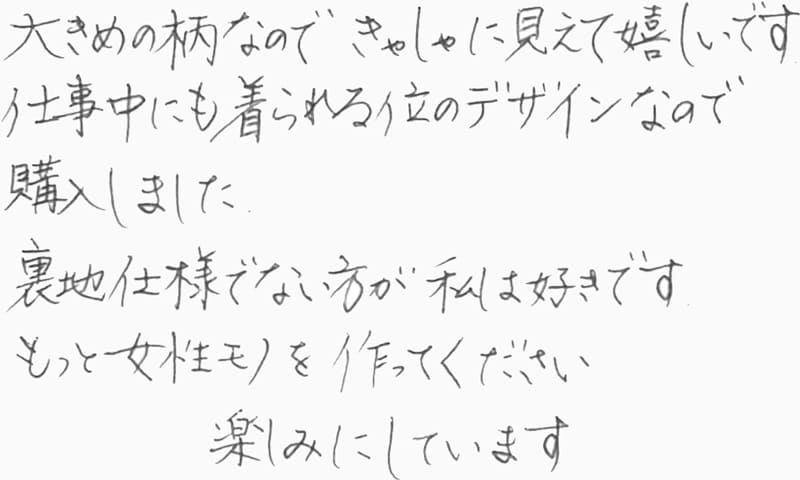 大きめの柄なので きゃしゃに見えて嬉しいです
仕事中にも着られる位のデザインなので
購入しました.
裏地仕様でない方が 私は好きです
もっと女性モノを作ってください
楽しみにしています